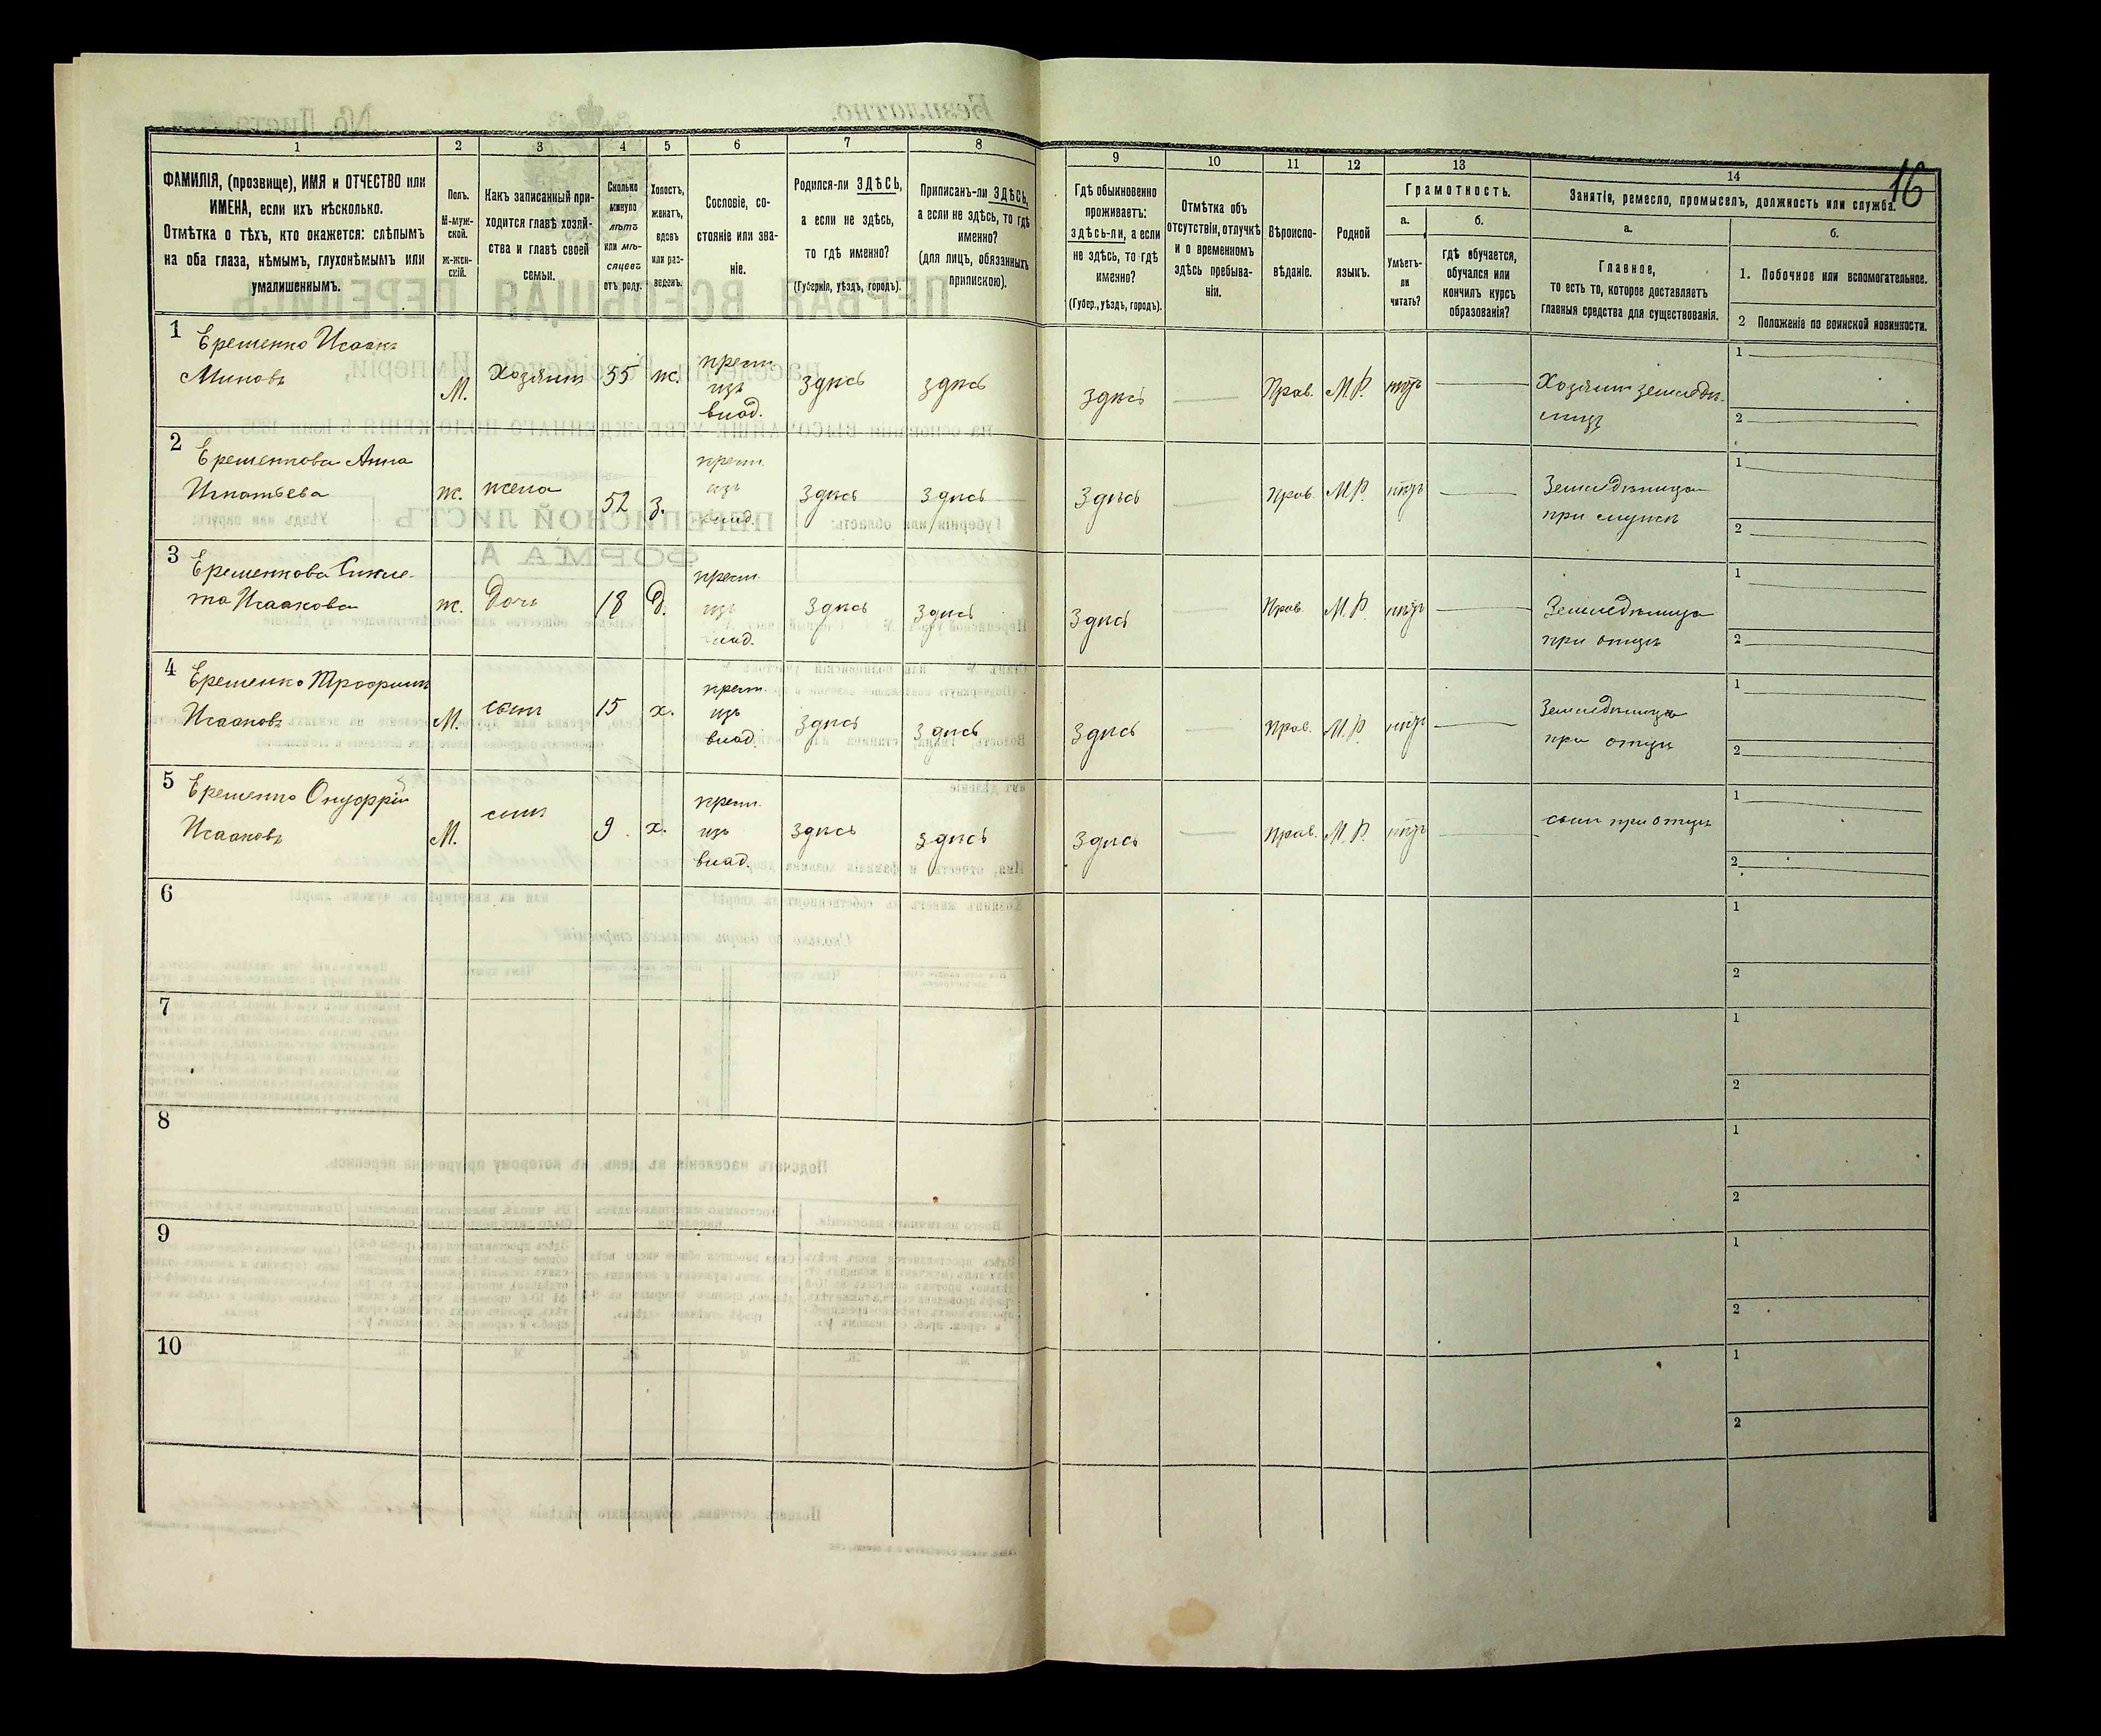 16
1 2 3 4 5 6 7 8 9 10 11 12 13 14
ФАМИЛІЯ, (прозвище), ИМЯ и ОТЧЕСТВО или
ИМЕНА, если ихъ нѣсколько.
Отмѣтка о тѣхъ, кто окажется: слѣпымъ
на оба глаза, нѣмымъ, глухонѣмымъ или
умалишеннымъ.
Полъ.
М-муж-
ской.
ж-жен-
скій.
Какъ записанный при-
ходится главѣ хозяй-
ства и главѣ своей
семьи.
Сколько
минуло
лѣтъ
или мѣ-
сяцевъ
отъ роду.
Холостъ,
женатъ,
вдовъ
или раз-
веденъ.
Сословіе, со-
стояніе или зва-
ніе.
Родился-ли ЗДѢСЬ,
а если не здѣсь,
то гдѣ именно?
(Губернія, уѣздъ, городъ).
Приписанъ-ли ЗДѢСЬ,
а если не здѣсь, то гдѣ
именно?
(для лицъ, обязанныхъ
припискою).
Гдѣ обыкновенно
проживаетъ:
здѣсь-ли, а если
не здѣсь, то гдѣ
именно?
(Губер., уѣздъ, городъ).
Отмѣтка объ
отсутствіи, отлучкѣ
и о временномъ
здѣсь пребыва-
ніи.
Вѣроиспо-
вѣданіе.
Родной
языкъ.
Грамотность.
а.
Умѣетъ-
ли
читать?
б.
гдѣ обучается,
обучался или
кончилъ курсъ
образованія?
Занятіе, ремесло, промыселъ, должность или служба.
а.
Главное,
то есть то, которое доставляетъ
главныя средства для существованія.
б.
1. Побочное или вспомогательное.
2 Положеніе по воинской повинности.
1 Ерешенко Исаакъ
Миновъ
М. Хозяинъ 55 ж. крест. изъ влад. здѣсь здѣсь здѣсь Прав. М.Р. нѣтъ Хозяинъ земледѣ-
лецъ
1
2
2 Ерешенкова Анна
Игнатьева
ж. жена 52 з. крест. изъ влад. здѣсь здѣсь здѣсь Прав. М.Р. нѣтъ Земледѣлица
при мужѣ
1
2
3 Ерешенкова
Исаакова
ж. дочь 18 д. крест. изъ влад. здѣсь здѣсь здѣсь Прав. М.Р. нѣтъ Земледѣлица
при отцѣ
1
2
4 Ерешенко Трофимъ
Исааковъ
М. сынъ 15 х. крест. изъ влад. здѣсь здѣсь здѣсь Прав. М.Р. нѣтъ
при отцѣ
1
2
5 Ерешенко Онуфрій
Исааковъ
М. сынъ 9 х. крест. изъ влад. здѣсь здѣсь здѣсь Прав. М.Р. нѣтъ сынъ при отцѣ
1
2
6
1
2
7
1
2
8
1
2
9
1
2
10
1
2